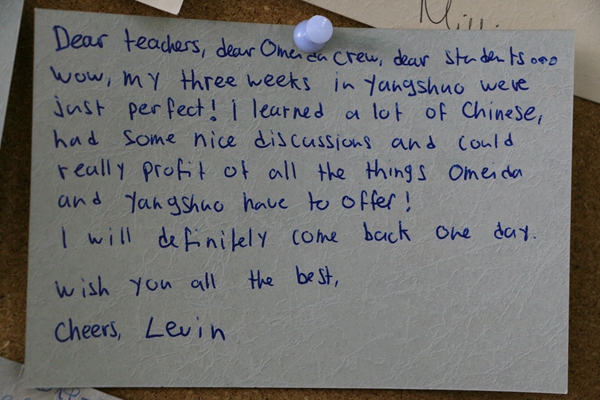 Dear teachers, dear Omeida crew, dear students...
Wow, my three weeks in Yangshuo were
just perfect! I learned a lot of Chinese,
had some nice discussions and could
really profit of all the things Omeida
and Yangshuo have to offer!
I will definitely come back one day.
Wish you all the best,
Cheers, Levin